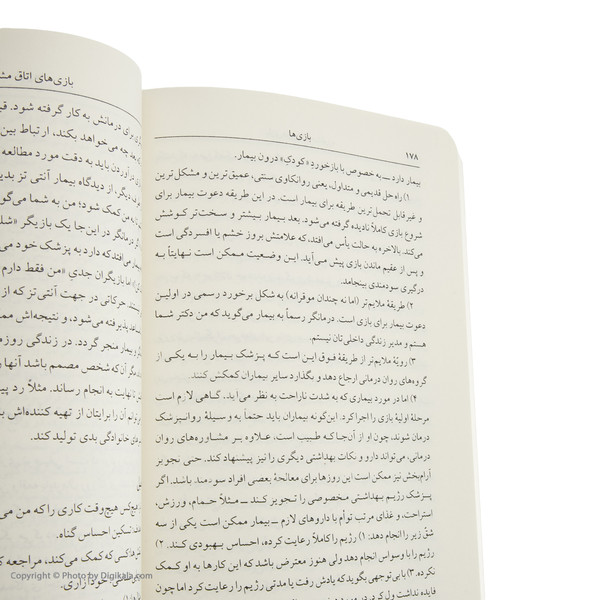 بازی‌ها
۱۷۸
بیمار دارد ــ به خصوص با بازخوردِ «کودکِ» درون بیمار.
۱) راه حل قدیمی و متداول، یعنی روانکاوی سنتی، عمیق‌ترین و مشکل‌ترین
و غیرقابل تحمل‌ترین طریقه برای بیمار است. در این طریقه دعوت بیمار برای
شروع بازی کاملاً نادیده گرفته می‌شود. بعد بیمار بیشتر و سخت‌تر کوشش
می‌کند. بالاخره به حالت یأس می‌افتد، که علامتش بروز خشم یا افسردگی است
و پس از عقیم ماندن بازی پیش می‌آید. این وضعیت ممکن است نهایتاً به
درگیری سودمندی بینجامد.
۲) طریقهٔ ملایم‌تر (اما نه چندان موقرانه) به شکل برخورد رسمی در اولین
دعوت بیمار برای بازی است. درمانگر رسماً به بیمار می‌گوید که من دکتر شما
هستم و مدیر زندگی داخلی‌تان نیستم.
۳) رویّهٔ ملایم‌تر از طریقهٔ فوق این است کـه پـزشک بیمار را بـه یکی از
گروه‌های روان درمانی ارجاع دهد و بگذارد سایر بیماران کمکش کنند.
۴) اما در مورد بیماری که به شدت ناراحت به نظر می‌آید. گـاهی لازم است
مرحلهٔ اولیهٔ بازی را اجرا کرد. این‌گونه بیماران باید حتماً به وسیلهٔ روانپزشک
درمان شوند، چون او از آن‌جا که طبیب است، عـلاوه بـر مشاوره‌های روان
درمانی، می‌تواند دارو و نکات بهداشتی دیگری را نیز پیشنهاد کند. حتی تجویز
آرام‌بخش نیز ممکن است این روزها برای معالجهٔ بعضی افراد سودمند باشد. اگر
پـزشک رژیـم بـهداشتی مـخصوصی را تـجویز کـند ــ مـثلاً حـمام، ورزش،
استراحت، و غذای مرتب توأم با داروهای لازم ــ بیمار ممکن است یکی از سه
شقّ زیر را انجام دهد: ۱) رژیم را کاملاً رعایت کرده، احساس بهبودی کند. ۲)
رژیم را با وسواس انجام دهد ولی هنوز معترض باشد که این کارها به او کمک
نکرده. ۳) با بی‌توجهی بگوید که یادش رفت یا مدتی رژیم را رعایت کرد اما چون
فایده نداشت ول کرد.
بازی‌های اتاق
برای درمانش به کار گرفته شود.
چه می‌خواهد بکند، ارتباط بین
در آوردن باید به دقت مورد مطالعه
دیگر، از دیدگاه بیمار آنتی تز بدین
به من کمک شود؛ من به شما می‌گویم
درمانگر در این‌جا یک بازیگر
می‌افتد که دارد به پزشک خود می
اما بازیگران جدیِ «من فقط دارم
حرکاتی در جهت آنتی‌تز که از
پذیرفته می‌شود، و نتیجه‌اش ممکن
و بیمار منجر گردد. در زندگی روزمره
مگر آن که شخص مصمم باشد آنها را
تا نهایت به انجام رساند. مثلاً رد
آن را برایتان از تهیه کننده‌اش
خانوادگی بدی تولید کند.
هیچ‌کس هیچ‌وقت کاری را که من می
تسکین احساس گناه.
که کمک می‌کند، مراجعه
خودآزاری.
Copyright © Photo by Digikala.com